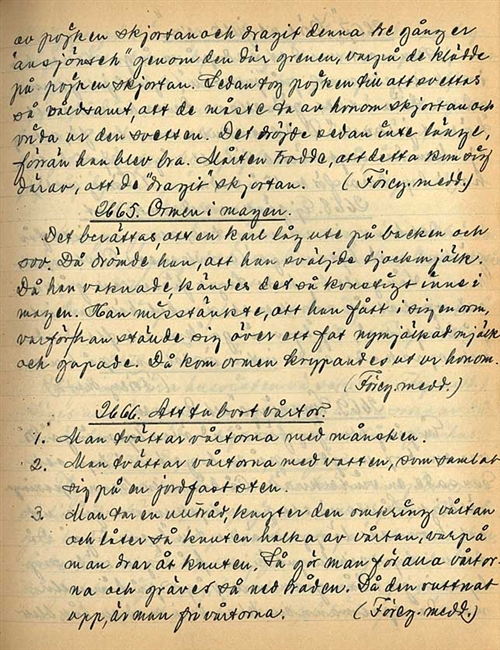 av pojken skjortan och dragit denna tre gånger
"ansjömsch" genom den där grenen, varpå de klädde
på pojken skjortan. Sedan tog pojken till att svettas
så våldsamt, att de måste ta av honom skjortan och
vrida ur den svetten. Det dröjde sedan inte länge,
förrän han blev bra. Mårten trodde, att detta kom sig
därav, att de "dragit" skjortan. (Förcg. medd.)
2665. Ormen i magen.
Det berättas, att en karl låg ute på backen och
sov. Då drömde han, att han sväljde tjockmjölk.
Då han vaknade, kändes det så konstigt inne i
magen. Han misstänkte, att han fått i sig en orm,
varför han stände sig över ett fat nymjölkad mjölk
och gapade. Då kom ormen krypandes ut ur honom.
(Förcg. medd.)
2666. Att ta bort vårtor.
1. Man tvättar vårtorna med månsken.
2. Man tvättar vårtorna med vatten, som samlat
sig på en jordfast sten.
3. Man tar en ulltråd, knyter den omkring vårtan
och låter så knuten halka av vårtan, varpå
man drar åt knuten. Så gör man för alla vårtor-
na och gräves så ned tråden. Då den ruttnat
upp, är man fri vårtorna. (Förcg. medd.)